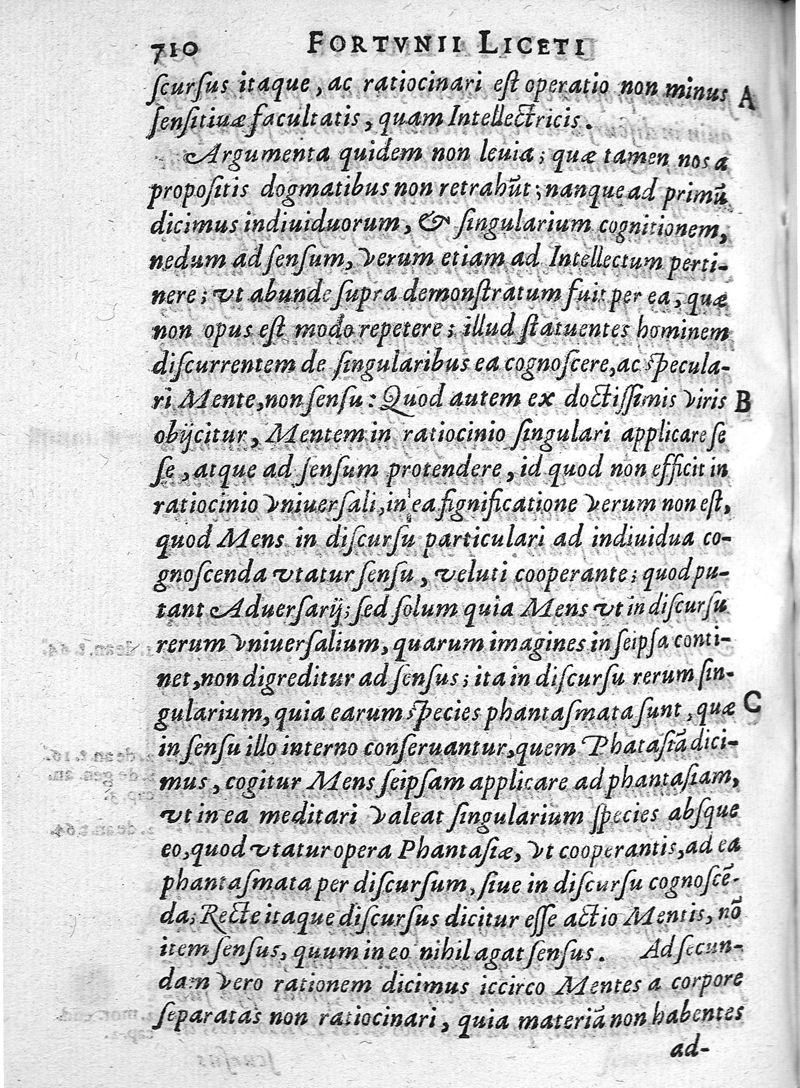 710 FORTVNII LICETI
ſcurſus itaque, ac ratiocinari eſt operatio non minus A
ſenſitiuæ facultatis, quam Intellectricis.
Argumenta quidem non leuia; quæ tamen nos a
propoſitis dogmatibus non retrahūt; nanque ad primū
dicimus indiuiduorum, & ſingularium cognitionem,
nedum ad ſenſum, verum etiam ad Intellectum perti-
nere; vt abunde ſupra demonſtratum fuit per ea, quæ
non opus eſt modo repetere; illud ſtatuentes hominem
diſcurrentem de ſingularibus ea cognoſcere, ac ſpecula-
ri Mente, non ſenſu: Quod autem ex doctiſſimis viris B
obijcitur, Mentem in ratiocinio ſingulari applicare ſe
ſe, atque ad ſenſum protendere, id quod non efficit in
ratiocinio vniuerſali, in ea ſignificatione verum non eſt,
quod Mens in diſcurſu particulari ad indiuidua co-
gnoſcenda vtatur ſenſu, veluti cooperante; quod pu-
tant Aduerſarij; ſed ſolum quia Mens vt in diſcurſu
rerum vniuerſalium, quarum imagines in ſeipſa conti-
net, non digreditur ad ſenſus; ita in diſcurſu rerum ſin-
gularium, quia earum ſpecies phantaſmata ſunt, quæ C
in ſenſu illo interno conſeruantur, quem Phātaſiā dici-
mus, cogitur Mens ſeipſam applicare ad phantaſiam,
vt in ea meditari valeat ſingularium ſpecies abſque
eo, quod vtatur opera Phantaſiæ, vt cooperantis, ad ea
phantaſmata per diſcurſum, ſiue in diſcurſu cognoſcē-
da; Recte itaque diſcurſus dicitur eſſe actio Mentis, nō
item ſenſus, quum in eo nihil agat ſenſus. Ad ſecun-
dam vero rationem dicimus iccirco Mentes a corpore
ſeparatas non ratiocinari, quia materiā non habentes
ad-